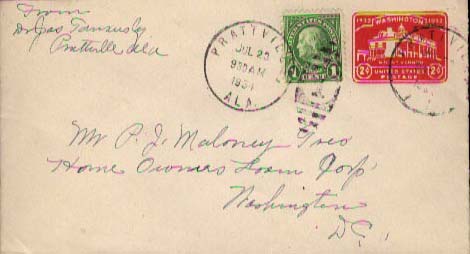 From
Dr Jas Tankersley
Prattville Ala
PRATTVILLE
JUL 23
930AM
1934
ALA.
1 CENT 1
1732 WASHINGTON 1932
MOUNT VERNON
2¢ UNITED STATES 2¢
POSTAGE
Mr P. J. Maloney Treas
Home Owners Loan Corp
Washington
D.C.